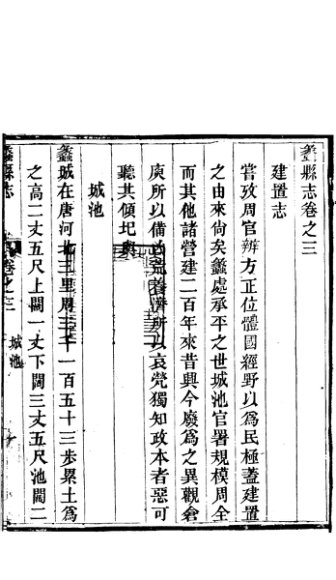 蠡縣志卷之三
建置志
嘗攷周官辨方正位體國經野以爲民極蓋建置
之由來尙矣蠡處承平之世城池官署規模周全
而其他諸營建二百年來昔興今廢爲之異觀倉
庾所以備凶荒養濟所以哀煢獨知政本者惡可
聽其傾圮歟
城池
蠡城在唐河北三里周三千一百五十三步累土爲
之高二丈五尺上闊一丈下闊三丈五尺池闊二
蠡縣志 卷之三 城池